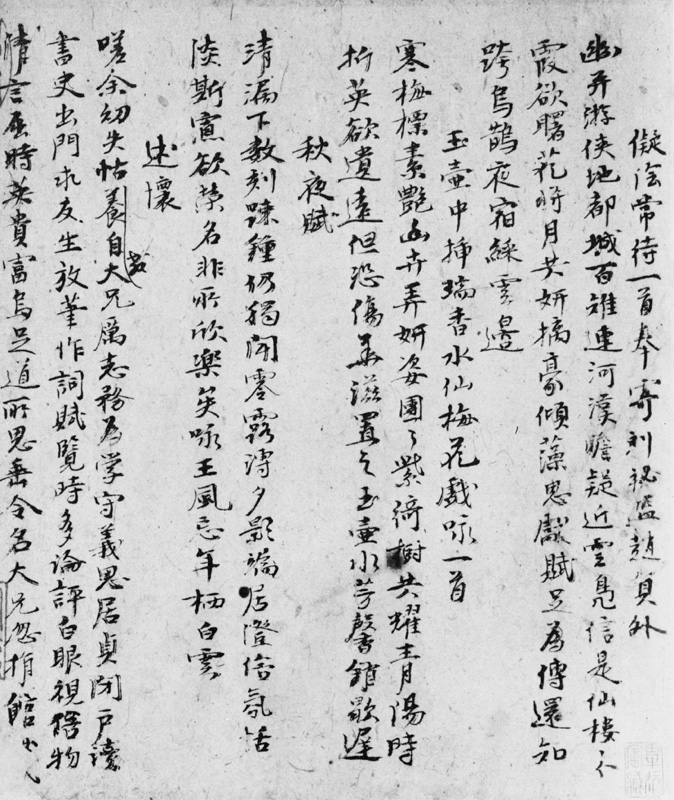 儗陰常侍一首奉寄劉秘監趙員外
幽并游俠地都城百雉連河漢瞻疑近雲鳧信是仙樓
霞欲曙花將月共妍摛豪傾藻思獻賦足為傳還知
跨烏鵲夜宿綵雲邊
玉壺中插瑞香水仙梅花戲咏一首
寒梅標素艷幽卉弄妍姿團々紫綺樹共耀青陽時
折英欲遺遠但恐傷華滋置之玉壺水芳馨銷歇遲
秋夜賦
清漏下數刻疎鐘仍獨聞零露溥夕影端居澄俗氛恬
淡斯寡欲榮名非所欣樂矣咏王風忘年栖白雲
述懷
嗟余幼失怙養自大兄為志務為學守義思居貞閉戶讀
書史出門求友生放筆作詞賦覽時多論評白眼視俗物
清言屈時英貴富烏足道所思垂令名大兄忽捐館